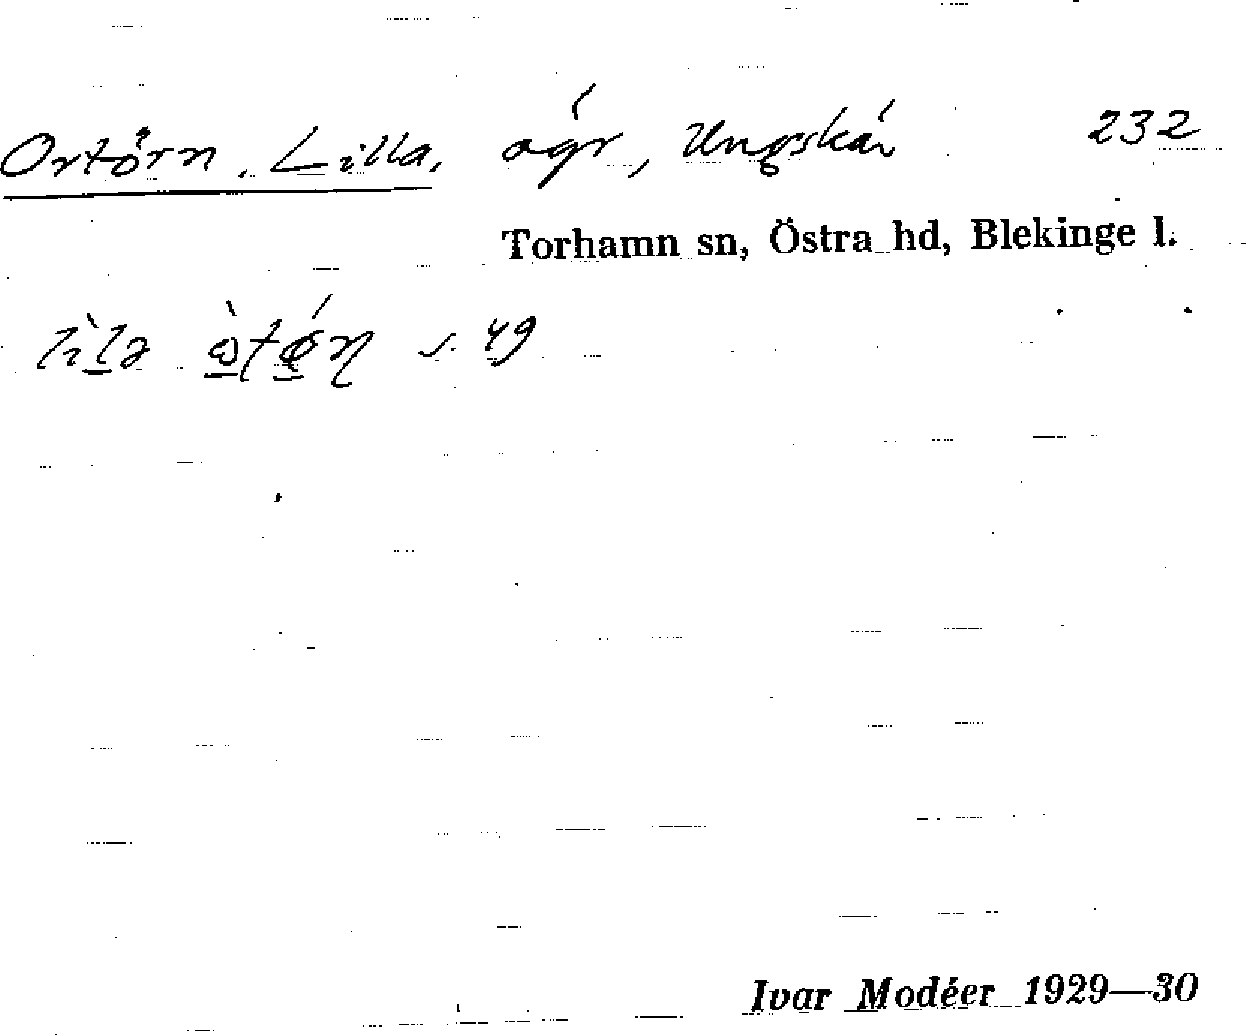 Ortörn, Lilla, ägr, Ungskär 232
Torhamn sn, Östra hd, Blekinge l.
s. 49
Ivar Modéer 1929—30